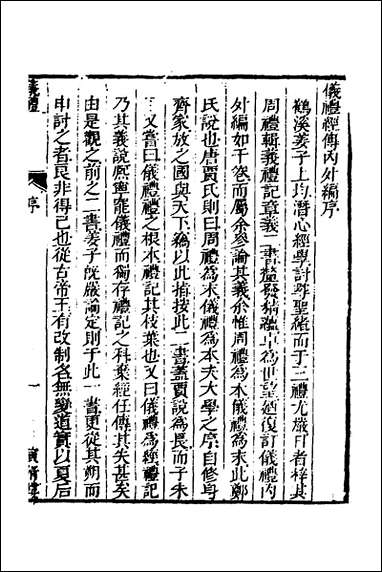 儀禮經傳內外編序
鶴溪姜子上均潛心經學討辟聖緒而于三禮尤嚴曰者梓其
周禮輯義禮記章義二書釐疑猜蘊卓為世望廼復訂儀禮內
外編如干卷而屬余參論其義余惟周禮為本儀禮為末此鄭
氏說也唐賈氏則曰周禮為末儀禮為本夫大學之序自修身
齊家放之國與天下竊以此指按此二書蓋賈說為長而子朱
子又嘗曰儀禮禮之根本禮記其枝葉也又曰儀禮為經禮記
乃其義說熙寧罷儀禮而獨存禮記之科棄經任傳其失甚矣
由是觀之前之二書姜子旣嚴論定則于此一書更從其朔而
申討之者良非得已也從古帝王有改制名無變道實以夏后
儀禮
序
一